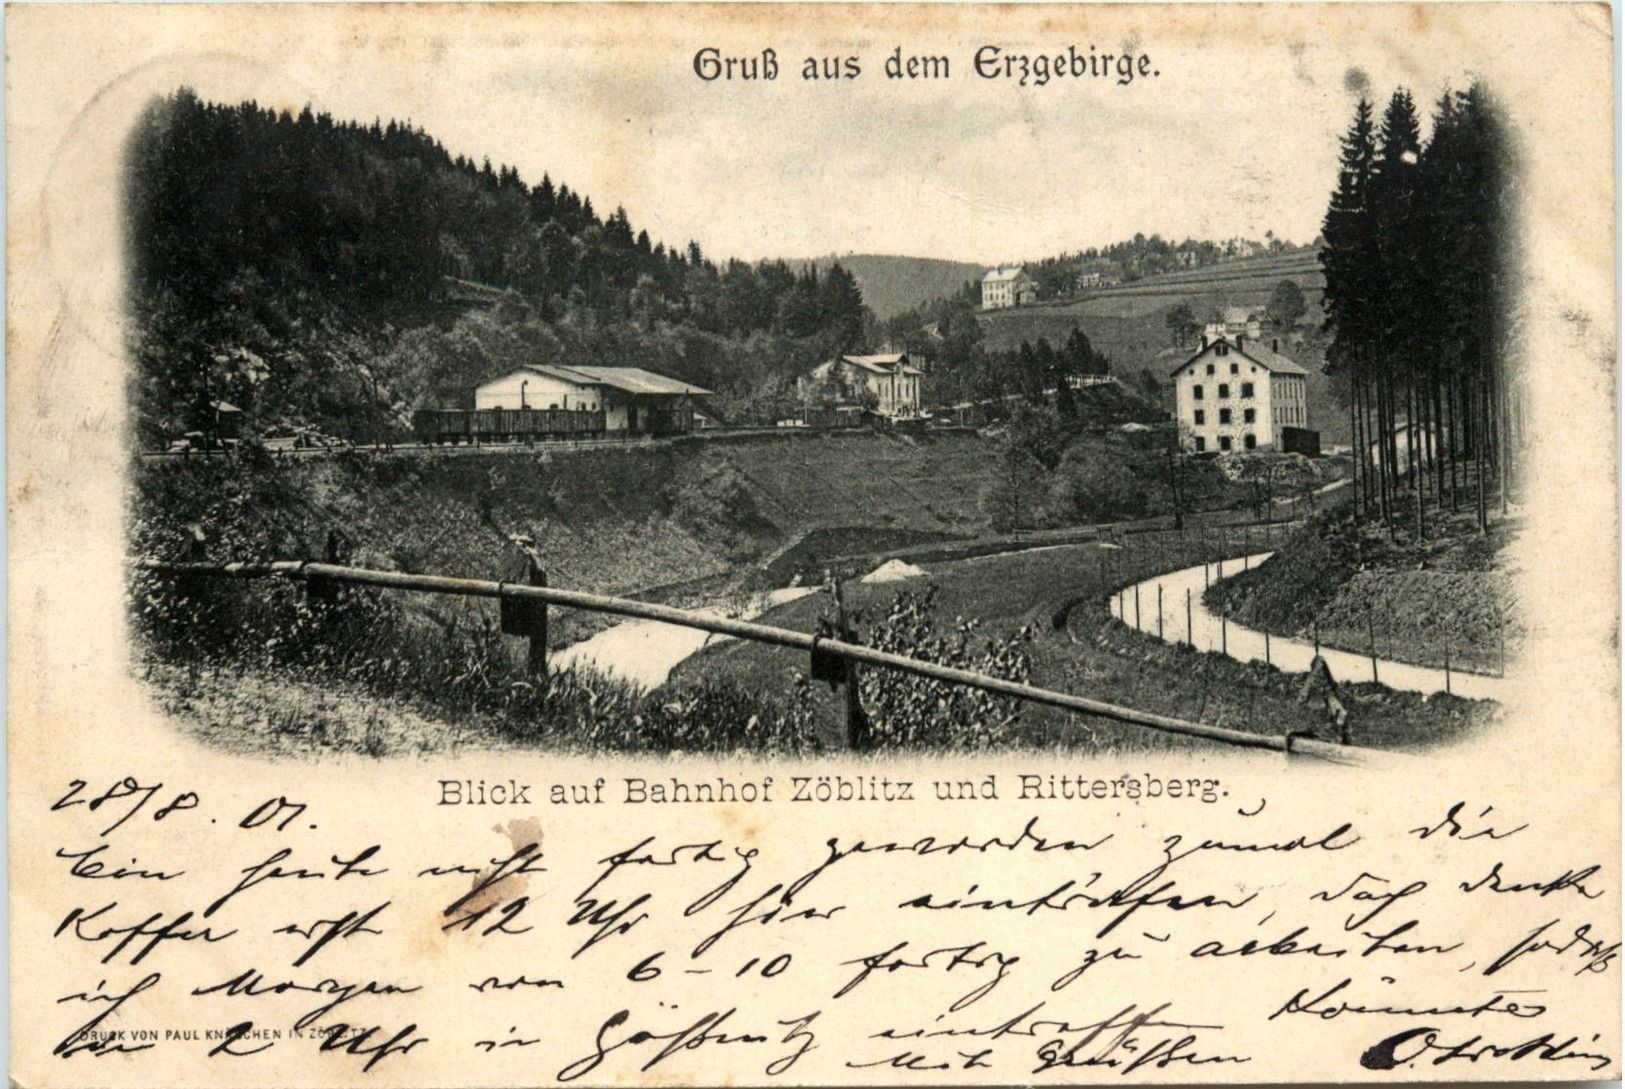 Gruß aus dem Erzgebirge.
Blick auf Bahnhof Zöblitz und Rittersberg.
28/8. 01.
Bin heute nicht fertig geworden zumal die
Koffer erst 12 Uhr hier eintrafen, doch denke
ich Morgen von 6-10 fertig zu arbeiten, sodaß
in 2 Uhr in Gößnitz eintreffen könnte
Mit Grüßen
DRUCK VON PAUL IN ZÖBLITZ